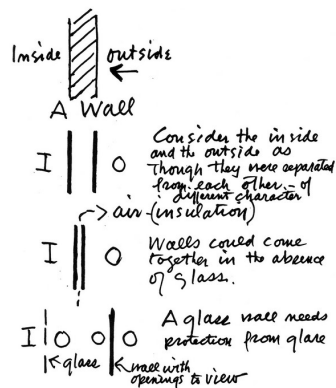 Inside outside
A Wall
Consider the inside
and the outside as
I O though they were separated
from each other - of
different character
air - (insulation)
I O Walls could come
together in the absence
of glass.
A glass wall needs
I O O O protection from glare
glass wall with
openings to view